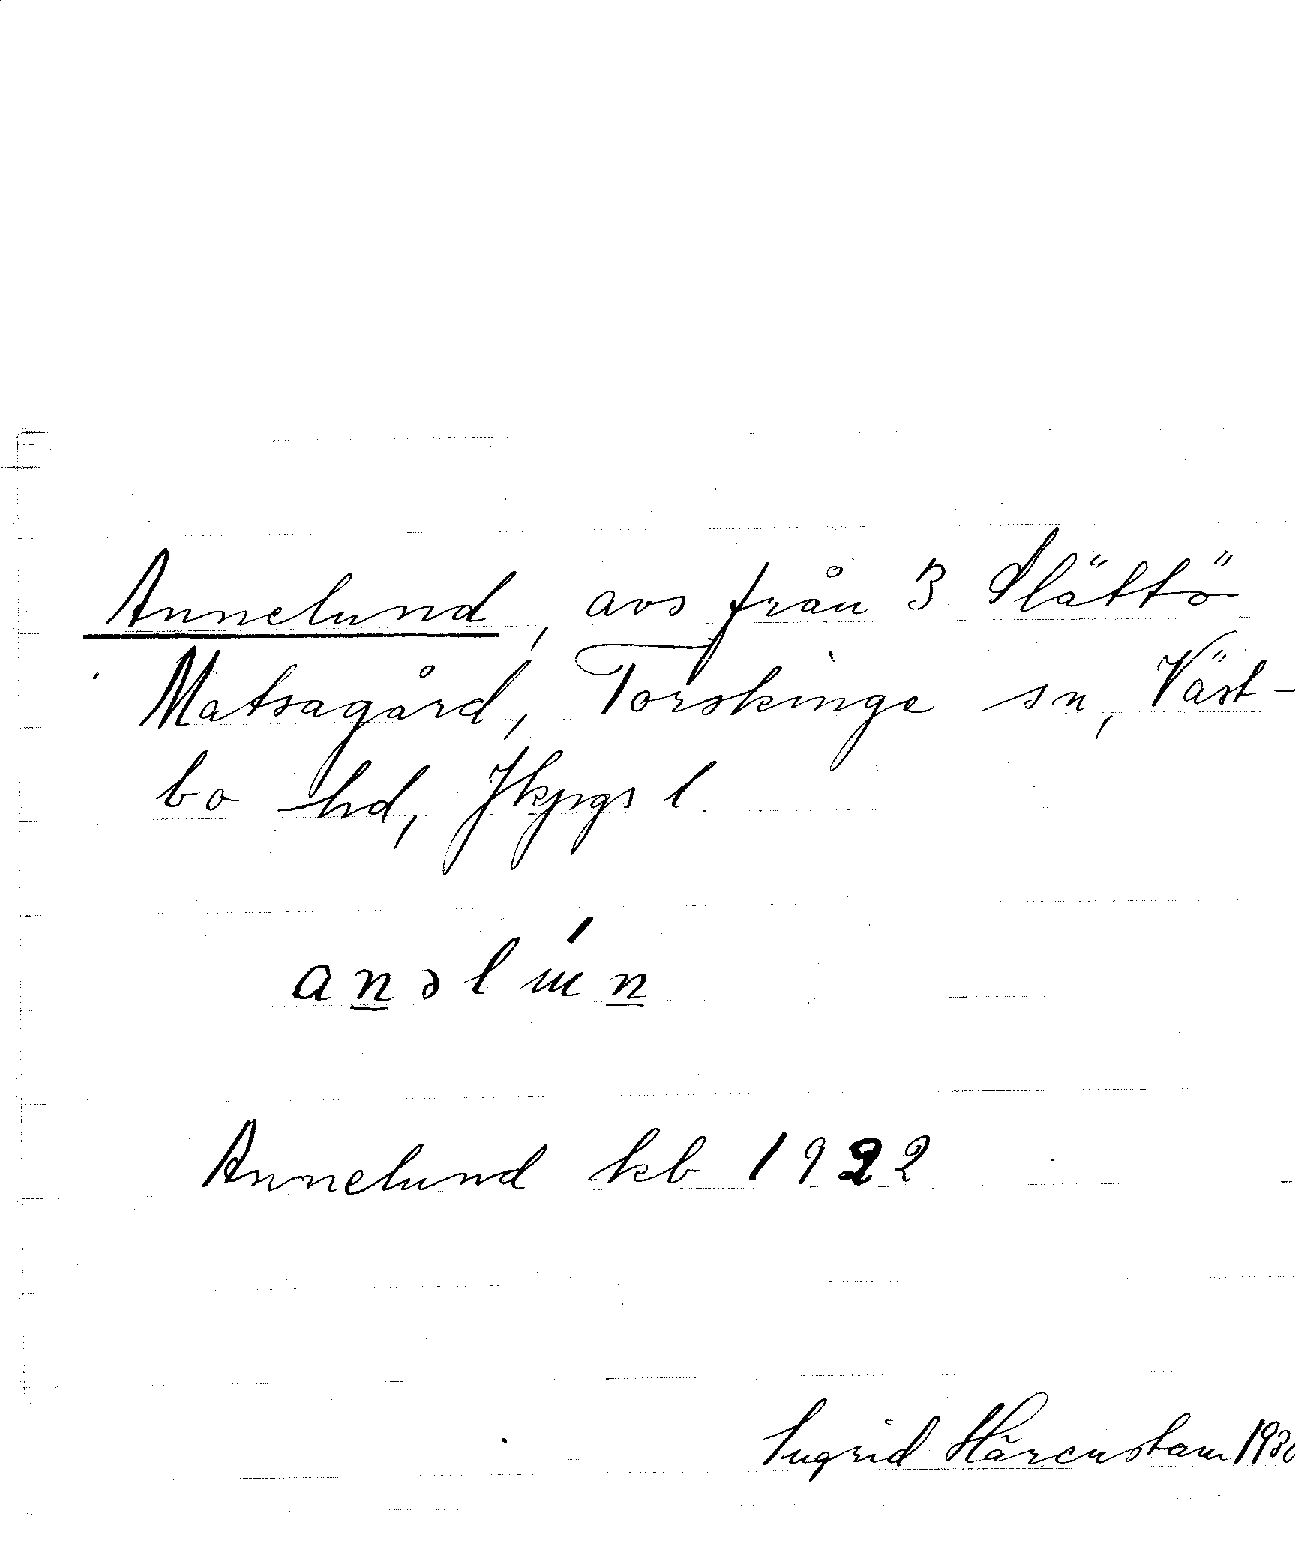 Annelund, avs från 3 Slättö
Matsagård, Torskinge sn, Väst-
bo hd, Jkpgs l.
anəlɯ́n
Annelund kb 1922
Ingrid Härenstam 1930